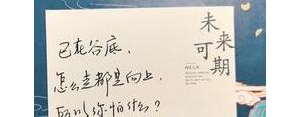 未来
可期
已在谷底，
怎么走都是向上，
所以你怕什么？